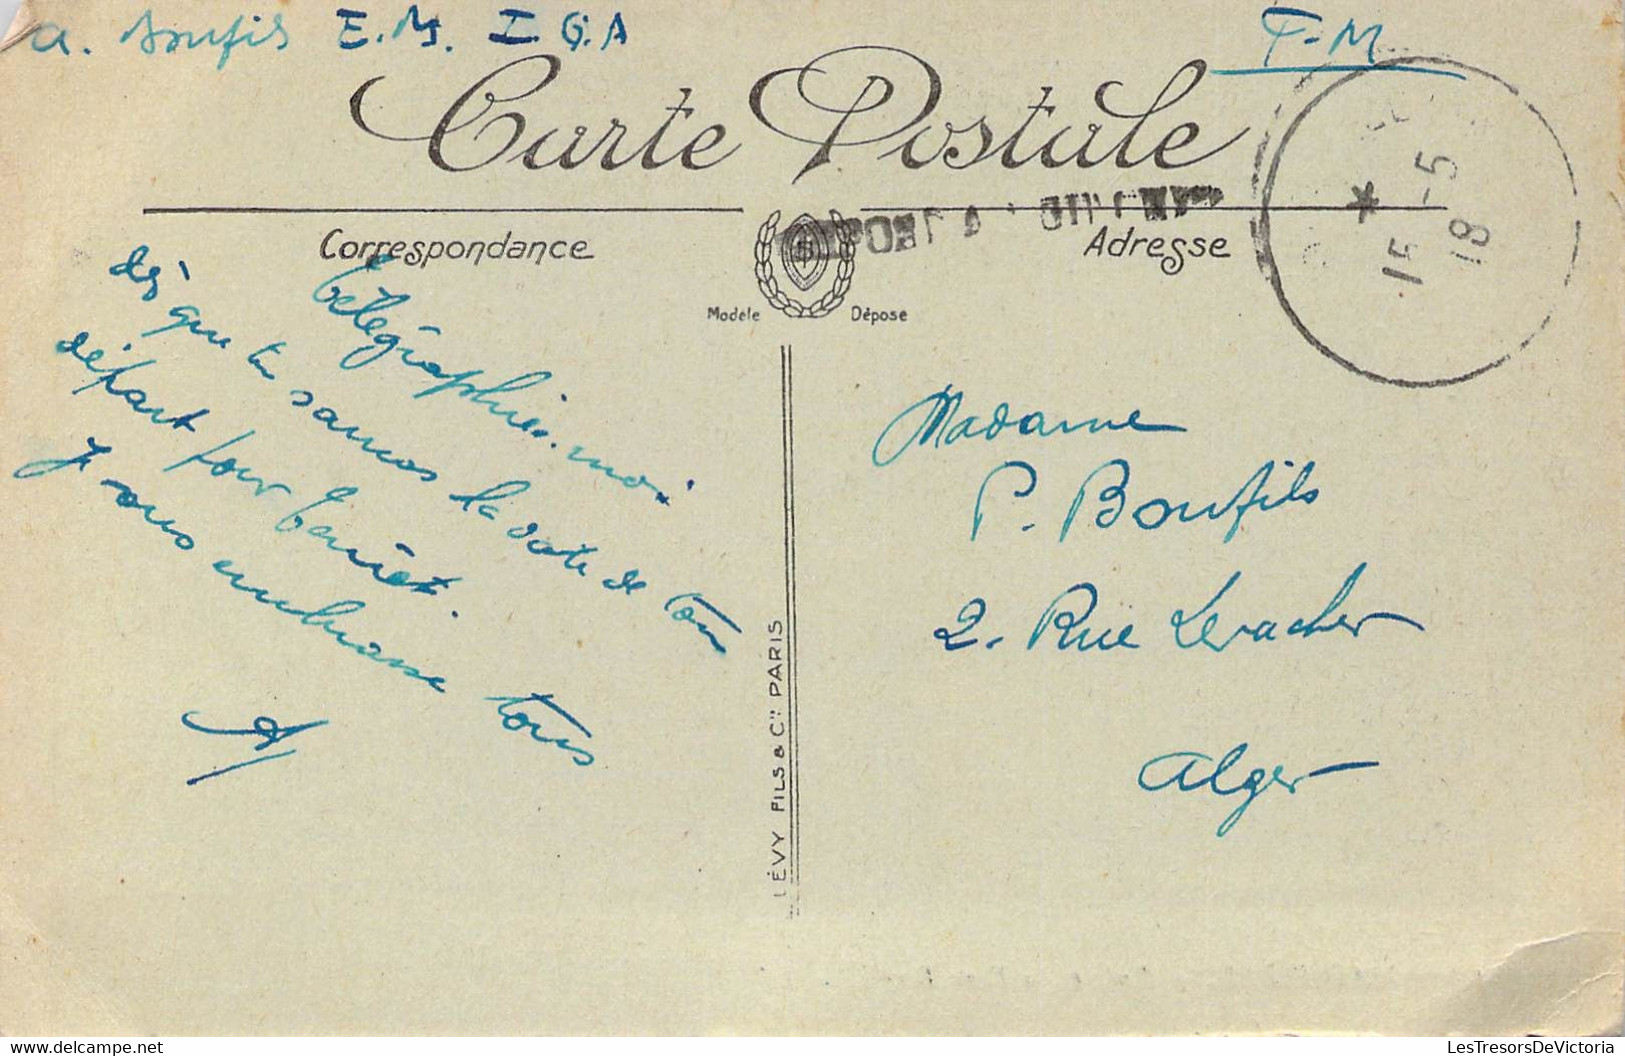 A. Bonfils E.M. I.G.A
F-M
Carte Postale
Correspondance
Adresse
Modèle Déposé
15 -5
18
Télégraphies-moi
dès que tu sauras la date de ton
départ pour
Je vous embrasse tous
A
Madame
P. Bonfils
2. Rue Levacher
Alger
LÉVY FILS & Cie PARIS
LesTresorsDeVictoria